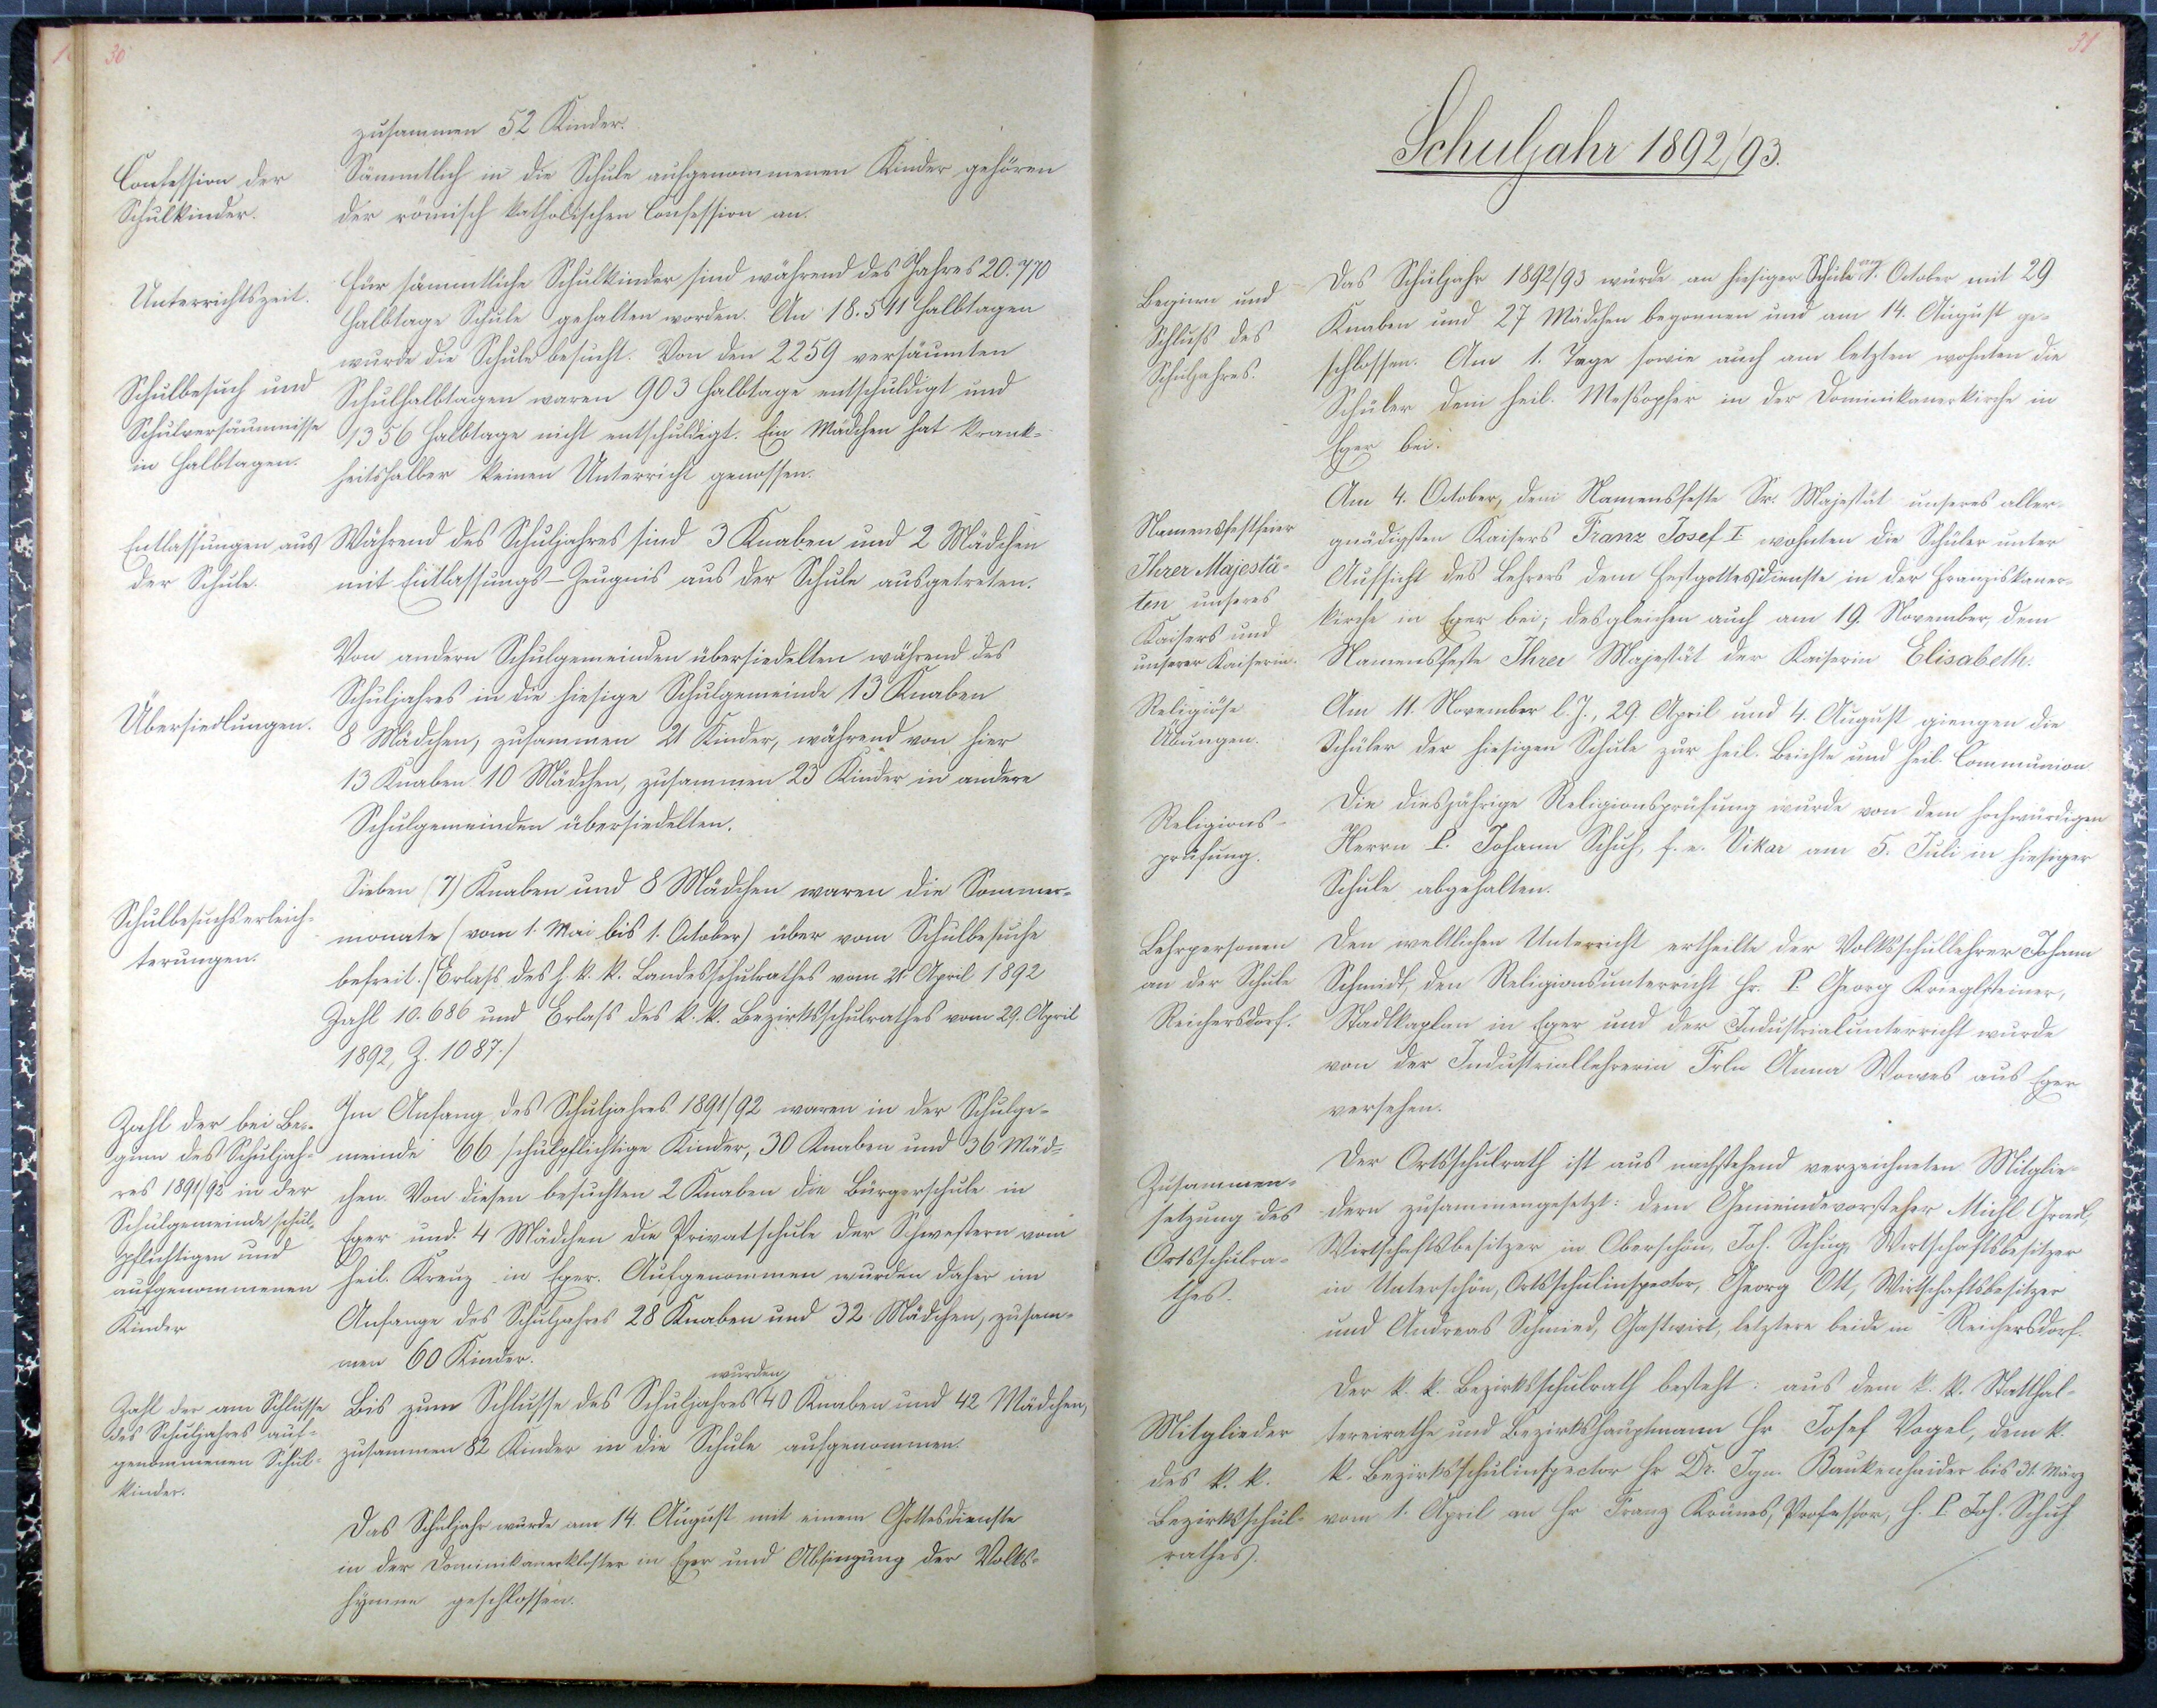 30
zusammen 52 Kinder.
Confession der
Schulkinder.
Sämmtlich in die Schule aufgenommenen Kinder gehören
der römisch katholischen Confession an.
Unterrichtszeit.
Für sämmtliche Schulkinder sind während des Jahres 20.770
Halbtage Schule gehalten worden. An 18.511 Halbtagen
wurde die Schule besucht. Von den 2259 versäumten
Schulbesuch und
Schulversäumnisse
in Halbtagen.
Schulhalbtagen waren 903 Halbtage entschuldigt und
1356 Halbtage nicht entschuldigt. Ein Mädchen hat krank-
heitshalber keinen Unterricht genossen.
Entlassungen aus
der Schule.
Während des Schuljahres sind 3 Knaben und 2 Mädchen
mit Entlassungs-Zeugnis aus der Schule ausgetreten.
Übersiedlungen.
Von andern Schulgemeinden übersiedelten während des
Schuljahres in die hiesige Schulgemeinde 13 Knaben
8 Mädchen, zusammen 21 Kinder, während von hier
13 Knaben 10 Mädchen, zusammen 23 Kinder in andere
Schulgemeinden übersiedelten.
Schulbesuchserleich-
terungen.
Sieben (7) Knaben und 8 Mädchen waren die Sommer-
monate (vom 1. Mai bis 1. October) über vom Schulbesuche
befreit. /Erlass des h. k. k. Landesschulrathes vom 21. April 1892
Zahl 10.686 und Erlass des k. k. Bezirksschulrathes vom 29. April
1892, Z. 1087./
Zahl der bei Be-
ginn des Schuljah-
res 1891/92 in der
Schulgemeinde schul-
pflichtigen und
aufgenommenen
Kinder
Im Anfang des Schuljahres 1891/92 waren in der Schulge-
meinde 66 schulpflichtige Kinder, 30 Knaben und 36 Mäd-
chen. Von diesen besuchten 2 Knaben die Bürgerschule in
Eger und 4 Mädchen die Privatschule der Schwestern vom
heil. Kreuz in Eger. Aufgenommen wurden daher im
Anfange des Schuljahres 28 Knaben und 32 Mädchen, zusam-
men 60 Kinder.
Zahl der am Schlusse
des Schuljahres auf-
genommenen Schul-
kinder.
wurden
Bis zum Schlusse des Schuljahres 40 Knaben und 42 Mädchen,
zusammen 82 Kinder in die Schule aufgenommen.
Das Schuljahr wurde am 14. August mit einem Gottesdienste
in der Dominikanerkloster in Eger und Absingung der Volks-
hymne geschlossen.
31
Schuljahr 1892/93.
Beginn und
Schluss des
Schuljahres.
Das Schuljahr 1892/93 wurde an hiesiger Schule am 1. October mit 29
Knaben und 27 Mädchen begonnen und am 14. August ge-
schlossen. Am 1. Tage sowie auch am letzten wohnten die
Schüler dem heil. Messopfer in der Dominikanerkirche in
Eger bei.
Namensfestfeier
Ihrer Majestä-
ten unseres
Kaisers und
unserer Kaiserin.
Am 4. October, dem Namensfeste Sr. Majestät unseres aller-
gnädigsten Kaisers Franz Josef I wohnten die Schüler unter
Aufsicht des Lehrers dem Festgottesdienste in der Franziskaner-
kirche in Eger bei; desgleichen auch am 19. November, dem
Namensfeste Ihrer Majestät der Kaiserin Elisabeth.
Religiöse
Übungen.
Am 11. November l. J., 29. April und 4. August giengen die
Schüler der hiesigen Schule zur heil. Beichte und heil. Communion.
Religions-
prüfung.
Die diesjährige Religionsprüfung wurde von dem hochwürdigen
Herrn P. Johann Schuh, f. e. Vikar am 5. Juli in hiesiger
Schule abgehalten.
Lehrpersonen
an der Schule
Reichersdorf.
Den weltlichen Unterricht ertheilte der Volksschullehrer Johann
Schmidt, den Religionsunterricht Hr. P. Georg Krieglsteiner,
Stadtkaplan in Eger und der Industrialunterricht wurde
von der Industriallehrerin Frln Anna Wowes aus Eger
versehen.
Zusammen-
setzung des
Ortsschulra-
thes.
Der Ortsschulrath ist aus nachstehend verzeichneten Mitglie-
dern zusammengesetzt: dem Gemeindevorsteher Michl Gradl,
Wirtschaftsbesitzer in Oberschön, Joh. Schug, Wirtschaftsbesitzer
in Unterschön, Ortsschulinspector, Georg Ott, Wirtschaftsbesitzer
und Andreas Schmied, Gastwirt, letztere beide in Reichersdorf.
Mitglieder
des k. k.
Bezirksschul-
rathes.
Der k. k. Bezirksschulrath besteht: aus dem k. k. Statthal-
tereirathe und Bezirkshauptmann Hr. Josef Vogel, dem k.
k. Bezirksschulinspector Hr Dr. Ign. Baukenhaider bis 31. März
vom 1. April an Hr Franz Krünes, Professor, H. P. Joh. Schuh